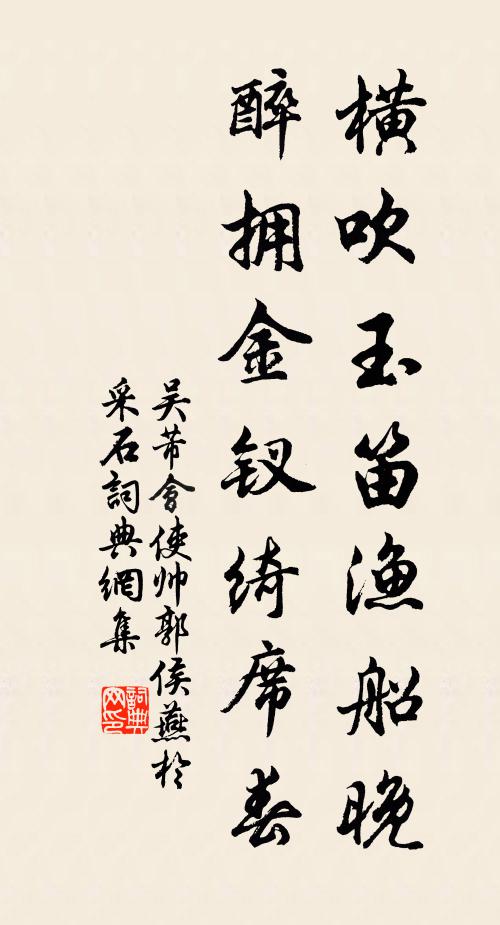 橫吹玉笛漁船晚
醉拥金钗綺席春
吴芾會使帅郭侯燕於
采石詞典網集
詞典
网印